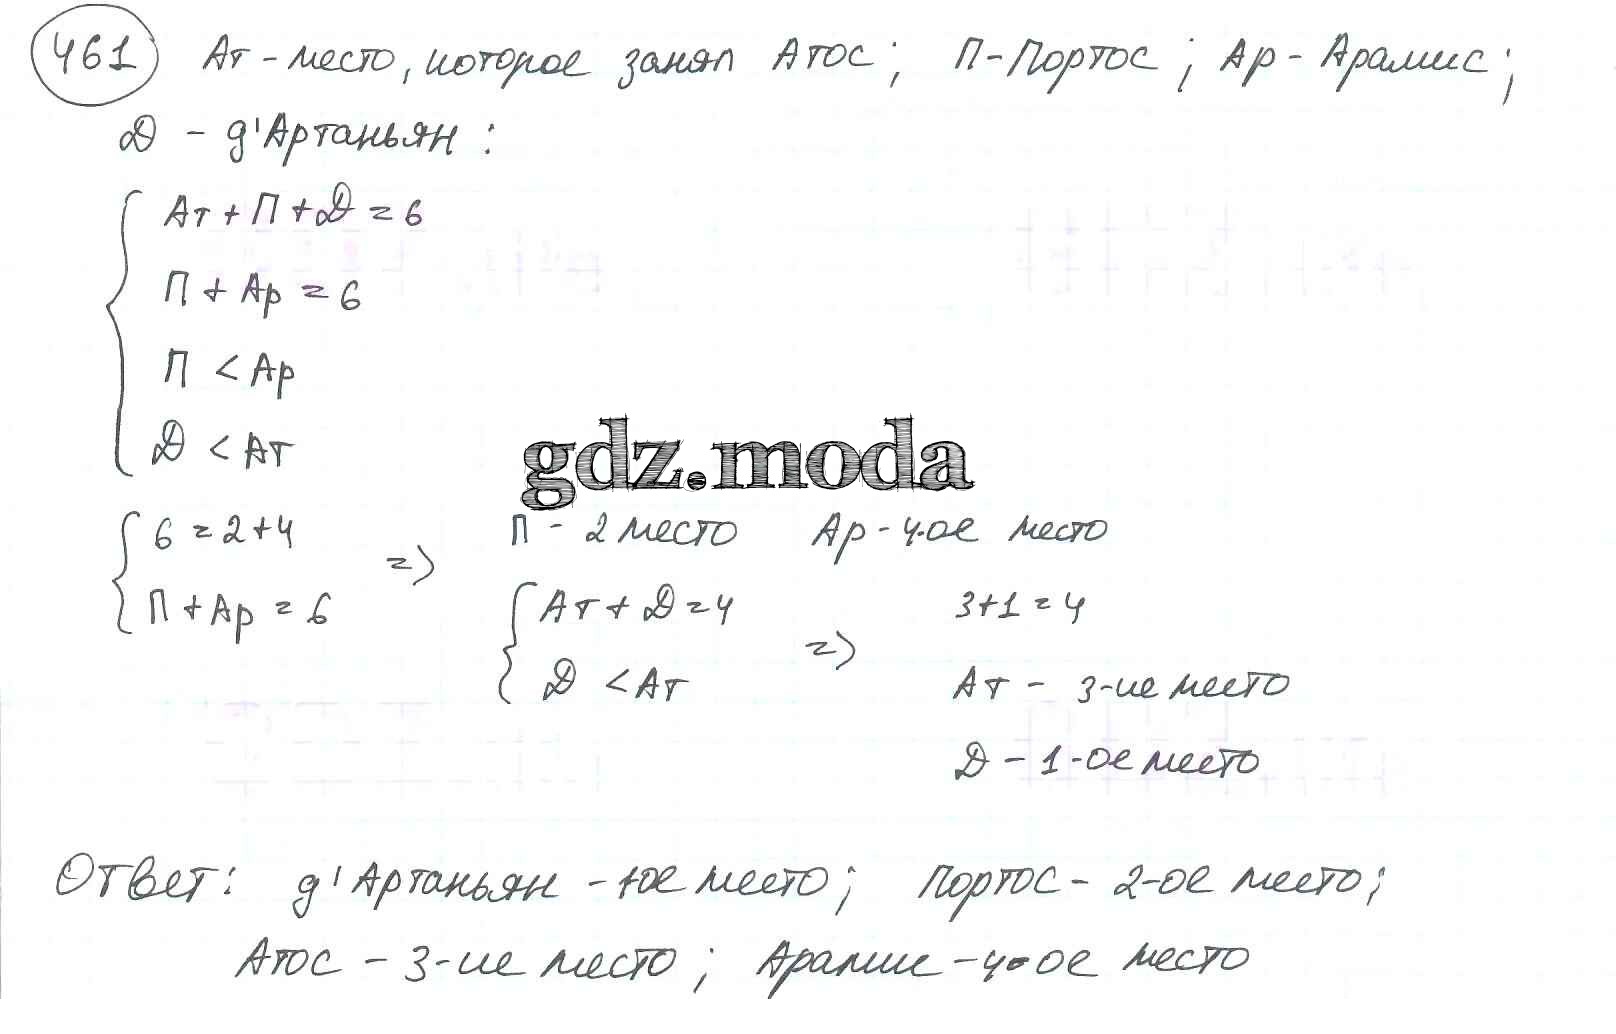 461 Ат - место, которое занял Атос; П - Портос; Ар - Арамис;
Д - д'Артаньян:
Ат + П + Д = 6
П + Ар = 6
П < Ар
Д < Ат
gdz.moda
6 = 2 + 4 => П - 2 место Ар - 4-ое место
П + Ар = 6
Ат + Д = 4 => 3 + 1 = 4
Д < Ат
Ат - 3-ие место
Д - 1-ое место
Ответ: д'Артаньян - 1ое место; Портос - 2-ое место;
Атос - 3-ие место; Арамис - 4-ое место